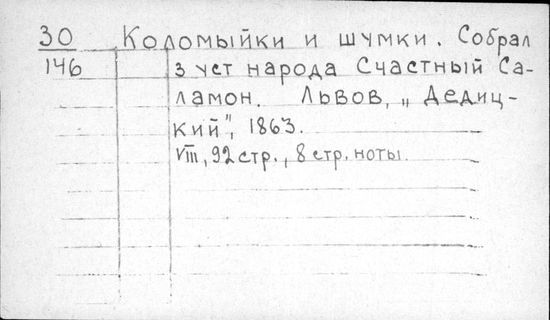 30 Коломыйки и шумки. Собрал
146 з уст народа Счастный Са-
ламон. Львов, „Дедиц-
кий", 1863.
VIII, 92 стр., 8 стр. ноты.